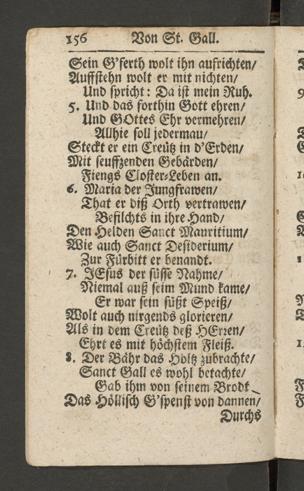 156 Von St. Gall.
Sein G'ferth wolt ihn aufrichten/
Auffstehn wolt er mit nichten/
Und spricht: Da ist mein Ruh.
5. Und das forthin Gott ehren/
Und GOttes Ehr vermehren/
Allhie soll jederman/
Steckt er ein Creütz in d'Erden/
Mit seuffzenden Gebärden/
Fiengs Closter-Leben an.
6. Maria der Jungfrawen/
That er diß Orth vertrawen/
Befilchts in ihre Hand/
Den Helden Sanct Mauritium/
Wie auch Sanct Desiderium/
Zur Fürbitt er benandt.
7. JEsus der süsse Nahme/
Niemal auß seim Mund kame/
Er war sein süßt Speiß/
Wolt auch nirgends glorieren/
Als in dem Creütz deß HErren/
Ehrt es mit höchstem Fleiß.
8. Der Bähr das Holtz zubrachte/
Sanct Gall es wohl betachte/
Gab ihm von seinem Brodt
Das Höllisch G'spenst von dannen/
Durchs